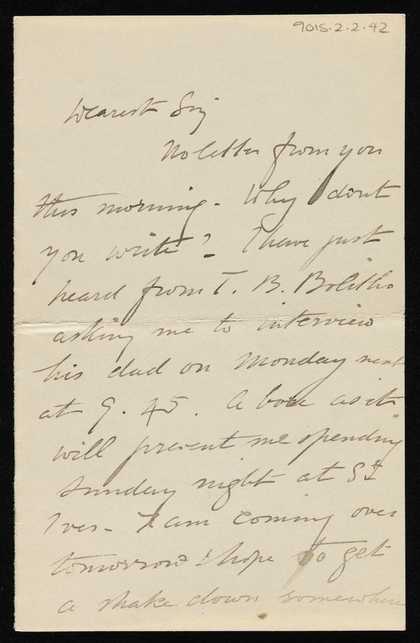 9015-2-2-42
Dearest Siz
No letter from you
this morning - Why don't
you write? I have just
heard from T. B. Bolitho
asking me to interview
his dad on Monday next
at 9.45. A bore as it
will prevent me spending
Sunday night at St
Ives - I am coming over
tomorrow & hope to get
a shake down somewhere